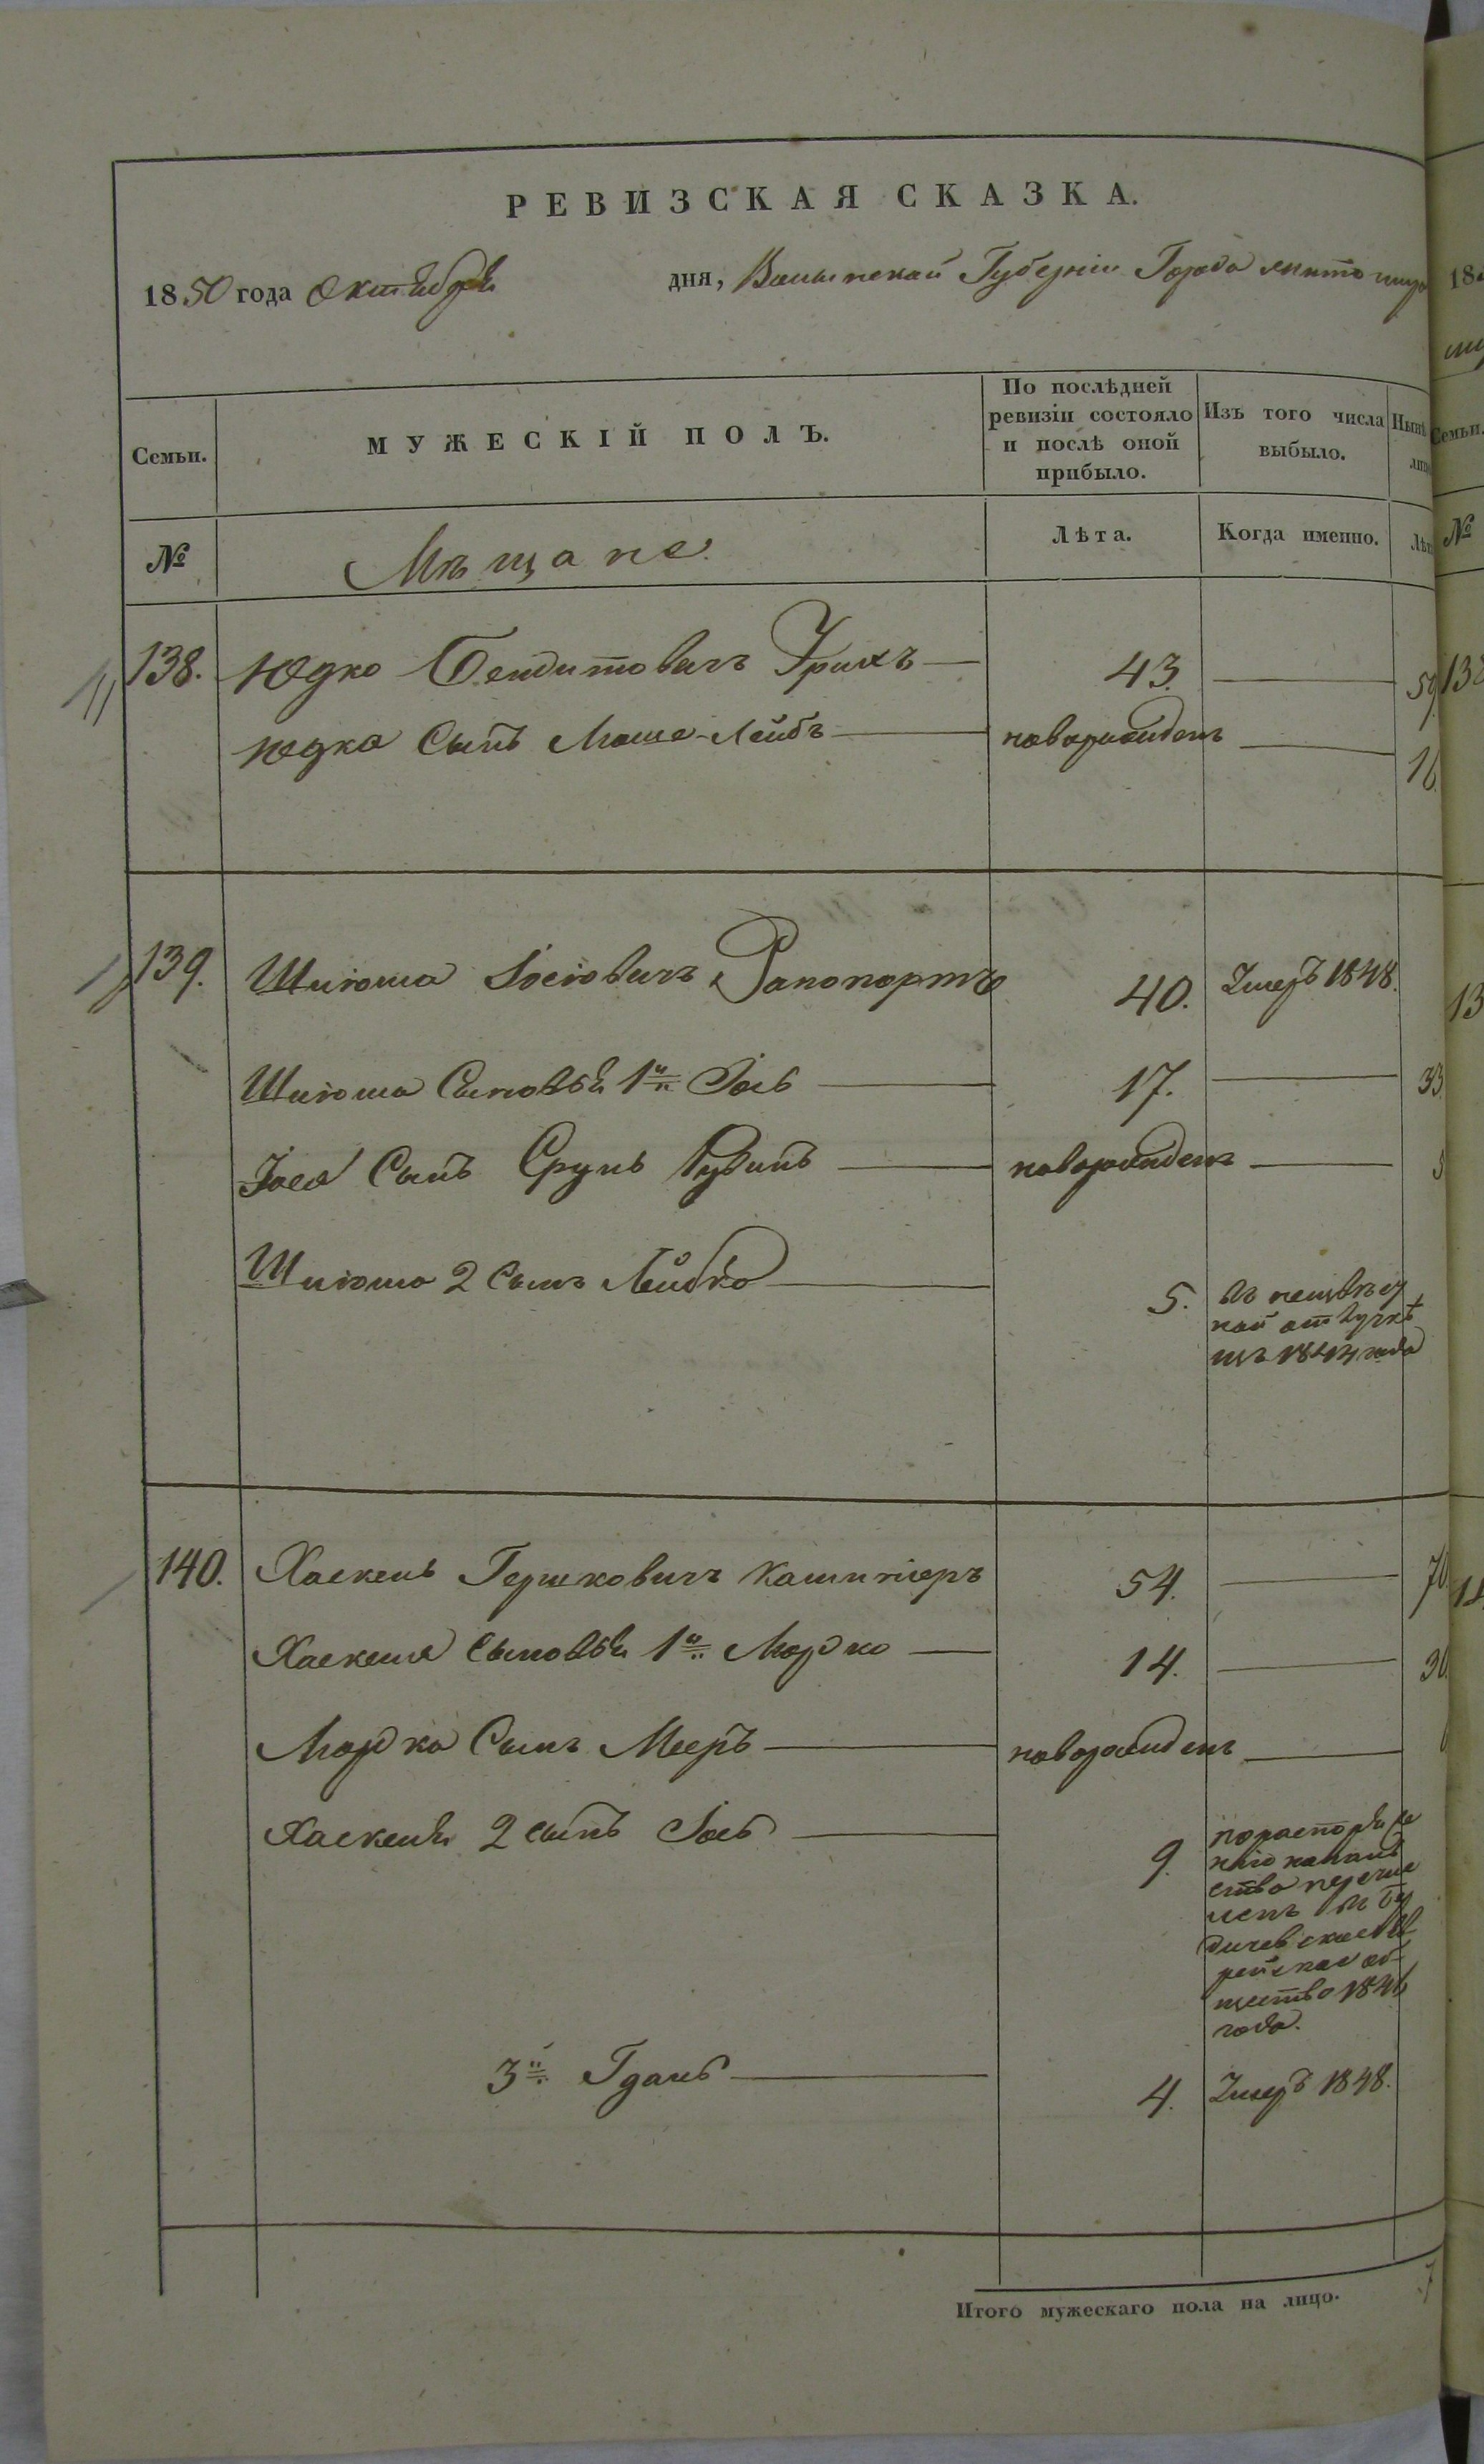 РЕВИЗСКАЯ СКАЗКА.
1850 года Октября дня, Волынской Губернии Города Житомира
Семьи. МУЖЕСКІЙ ПОЛЪ. По послѣдней ревизіи состояло и послѣ оной прибыло. Изъ того числа выбыло.
№ Мѣщане. Лѣта. Когда именно.
138. Юдко Бендитовичъ Урихъ 43.
Юдка Сынъ Мошко-Лейбъ новорожденъ 16.
139. Шлiома Iосiовичъ Рапопортъ 40. Умеръ 1848.
Шлiома Сыновья 1й Iось 17. 33
Iося Сынъ Сруль Рувинъ новорожденъ
Шлiома 2 Сынъ Лейбко 5. въ неизвѣст
ной отлучкѣ
съ 1844 года
140. Хаскель Гершковичъ 54. 70.
Хаскеля Сыновья 1й Мордко 14. 30.
Мордка Сынъ Мееръ новорожденъ
Хаскеля 2 сынъ Iось 9. по распоряже
нiю началь
ства перечис
ленъ въ Бер
дичевское Ев
рейское об-
щество 1846
года.
3й Гдаль 4. Умеръ 1848.
Итого мужескаго пола на лицо.